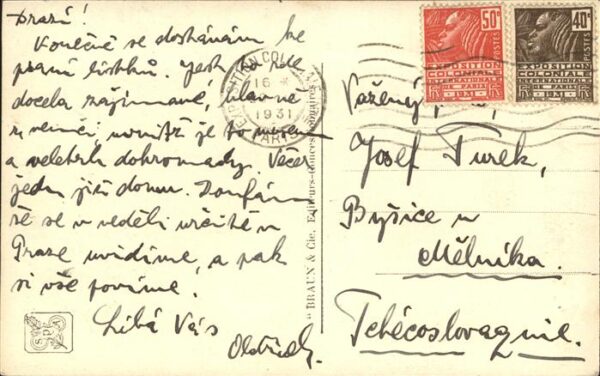 Drazí!
Konečně se dostávám ke
psaní lístků. Jest to zde
docela zajímavé, hlavně
z venčí, uvnitř je to
a veletrh dohromady. Večer
jedu již domu. Doufám
že se v neděli určitě v
Praze uvidíme, a pak
si vše povíme.
Líbá Vás
Oldřich
SPA
" BRAUN & Cie, Editeurs-
COLONIALE
16
1931
PARIS
50c
POSTES
EXPOSITION
COLONIALE
INTERNATIONALE
PARIS 1931
RF
40c
POSTES
EXPOSITION
COLONIALE
INTERNATIONALE
PARIS 1931
RF
Vážený
Josef Turek,
Byšice u
Mělníka.
Tchécoslovaquie.